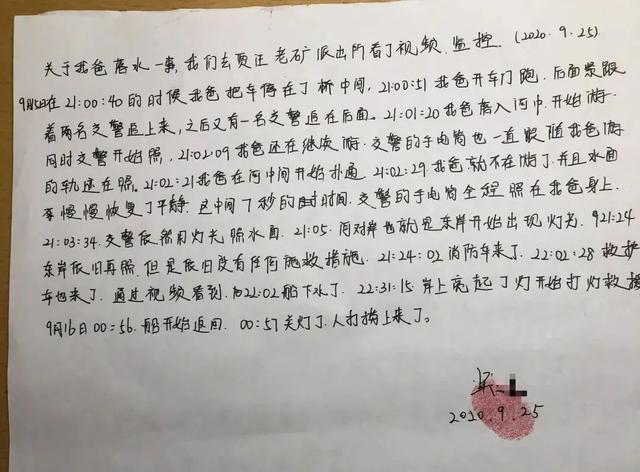 关于我爸落水一事,我们去贾汪老矿派出所看了视频.监控.(2020.9.25)
9月15日在21:00:40的时候我爸把车停在了桥中间,21:00:51我爸开车门跑.后面紧跟
着两名交警追上来,之后又有一名交警追在后面.21:01:20我爸落入河中.开始游.
同时交警开始照.21:02:09我爸还在继续游.交警的手电筒也一直跟随我爸游
的轨迹在照.21:02:21我爸在河中间开始扑通.21:02:29.我爸就不在游了.并且水面
慢慢恢复了平静.这中间7秒的时间.交警的手电筒全程照在我爸身上.
21:03:34.交警依然用灯光照水面.21:05.河对岸也就是东岸开始出现灯光.21:24
东岸依旧再照.但是依旧没有任何施救措施.21:24:02消防车来了.22:02:28救护
车也来了.通过视频看到.22:02船下水了.22:31:15.岸上亮起了灯开始打灯救援
9月16日00:56.船开始返回.00:57关灯了.人打捞上来了。
2020.9.25